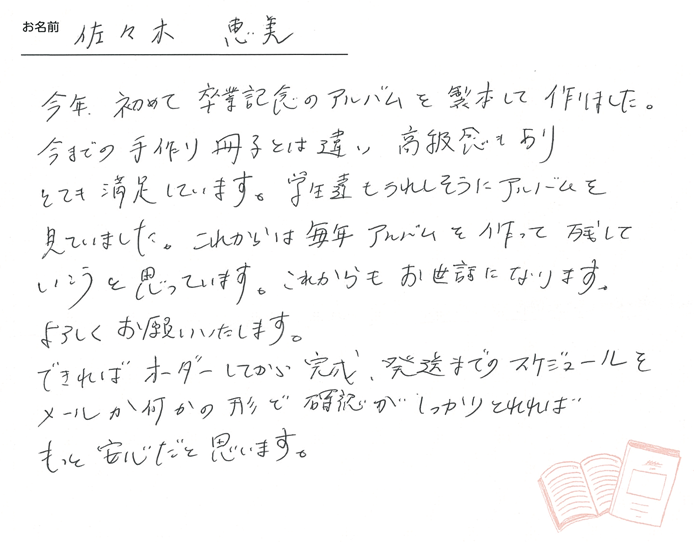 お名前 佐々木 恵美
今年、初めて卒業記念のアルバムを製本して作りました。
今までの手作り冊子とは違い、高級感もあり
とても満足しています。学生達もうれしそうにアルバムを
見ていました。これからは毎年アルバムを作って残して
いこうと思っています。これからもお世話になります。
よろしくお願いいたします。
できればオーダーしてから完成、発送までのスケジュールを
メールか何かの形で確認がしっかりとれれば
もっと安心だと思います。